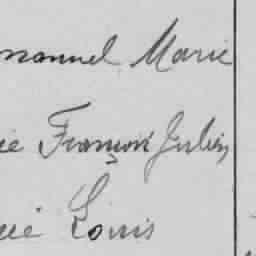 manuel Marie
ie François Julien
rie Louis